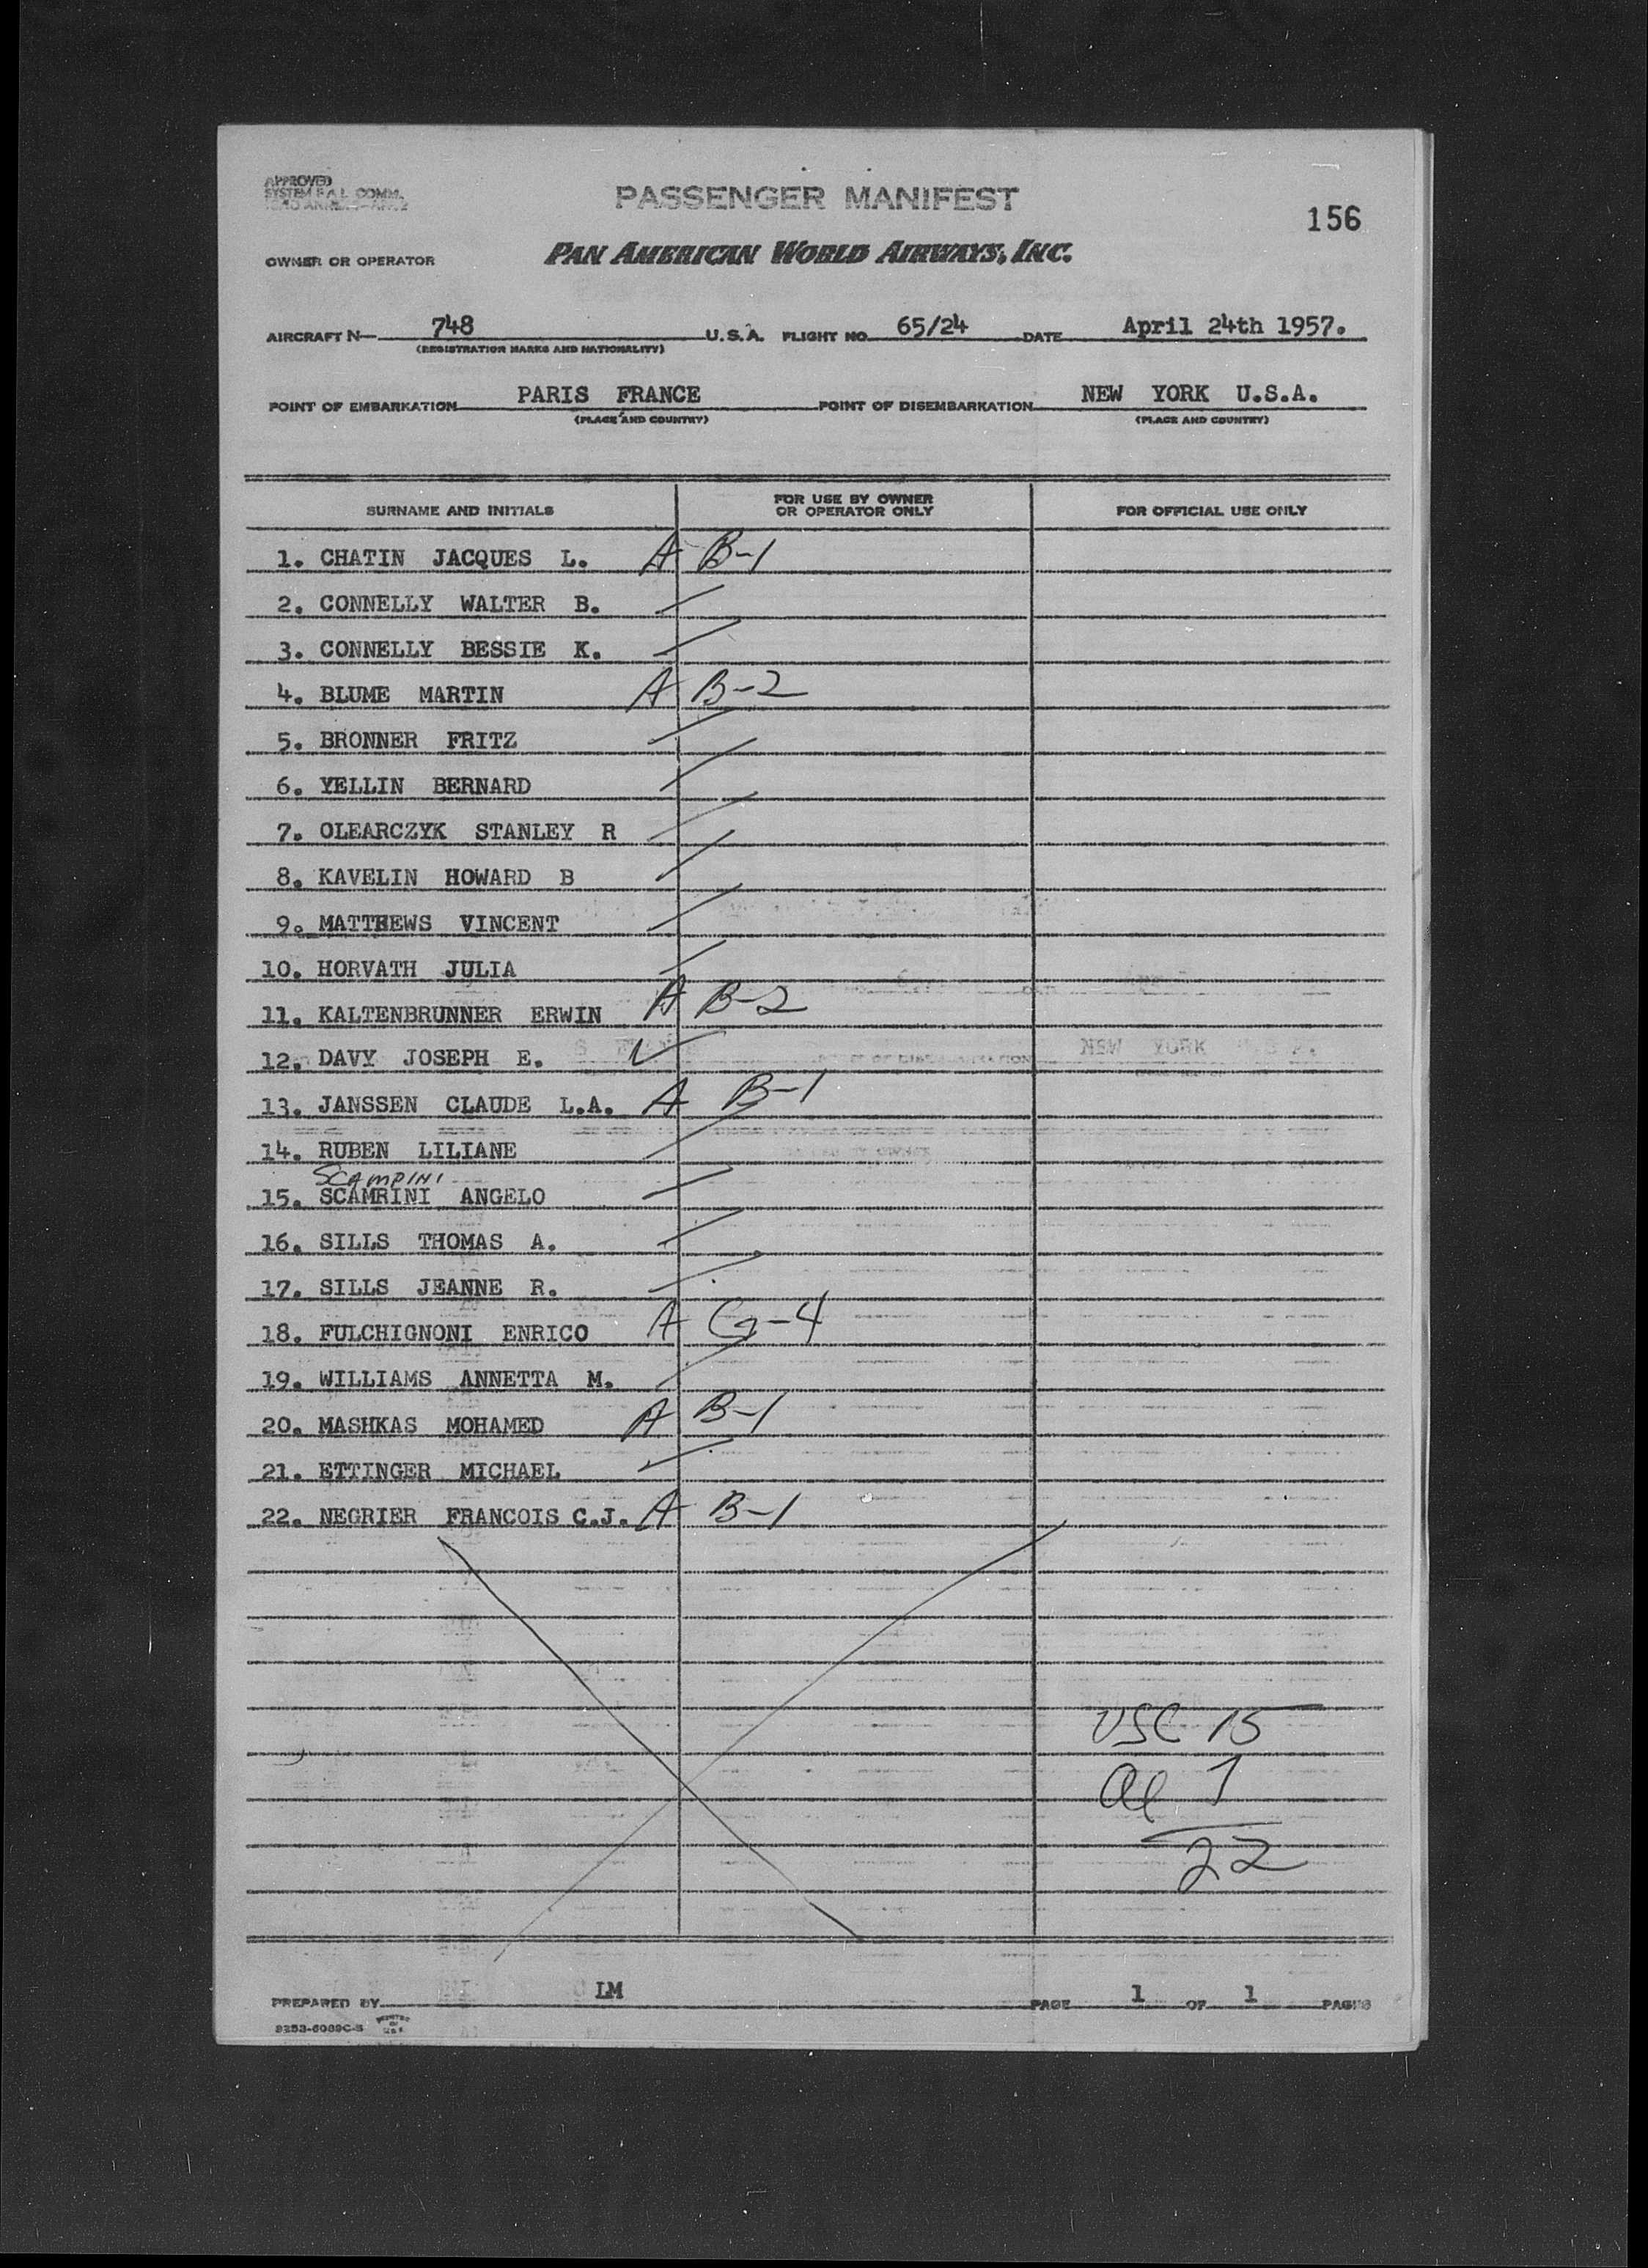 APPROVED
SYSTEM F.A.L. COMM.
PASSENGER MANIFEST
156
OWNER OR OPERATOR PAN AMERICAN WORLD AIRWAYS, INC.
AIRCRAFT N— 748 U.S.A. FLIGHT NO. 65/24 DATE April 24th 1957.
(REGISTRATION MARKS AND NATIONALITY)
POINT OF EMBARKATION PARIS FRANCE POINT OF DISEMBARKATION NEW YORK U.S.A.
(PLACE AND COUNTRY) (PLACE AND COUNTRY)
SURNAME AND INITIALS FOR USE BY OWNER OR OPERATOR ONLY FOR OFFICIAL USE ONLY
1. CHATIN JACQUES L. A B-1
2. CONNELLY WALTER B.
3. CONNELLY BESSIE K.
4. BLUME MARTIN A B-2
5. BRONNER FRITZ
6. YELLIN BERNARD
7. OLEARCZYK STANLEY R
8. KAVELIN HOWARD B
9. MATTHEWS VINCENT
10. HORVATH JULIA
11. KALTENBRUNNER ERWIN A B-2
12. DAVY JOSEPH E. ✓
13. JANSSEN CLAUDE L.A. A B-1
14. RUBEN LILIANE
SCAMPINI
15. SCAMRINI ANGELO
16. SILLS THOMAS A.
17. SILLS JEANNE R.
18. FULCHIGNONI ENRICO A G-4
19. WILLIAMS ANNETTA M.
20. MASHKAS MOHAMED A B-1
21. ETTINGER MICHAEL
22. NEGRIER FRANCOIS C.J. A B-1
USC 15
Al 7
22
PREPARED BY LM PAGE 1 OF 1 PAGES
PRINTED IN U.S.A.